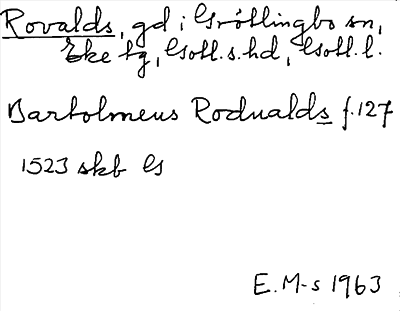 Rovalds, gd i Grötlingbo sn,
Eke tg, Gotl. s. hd, Gotl. l.
Bartolmeus Rodualds f. 127
1523 skb G
E. M-s 1963